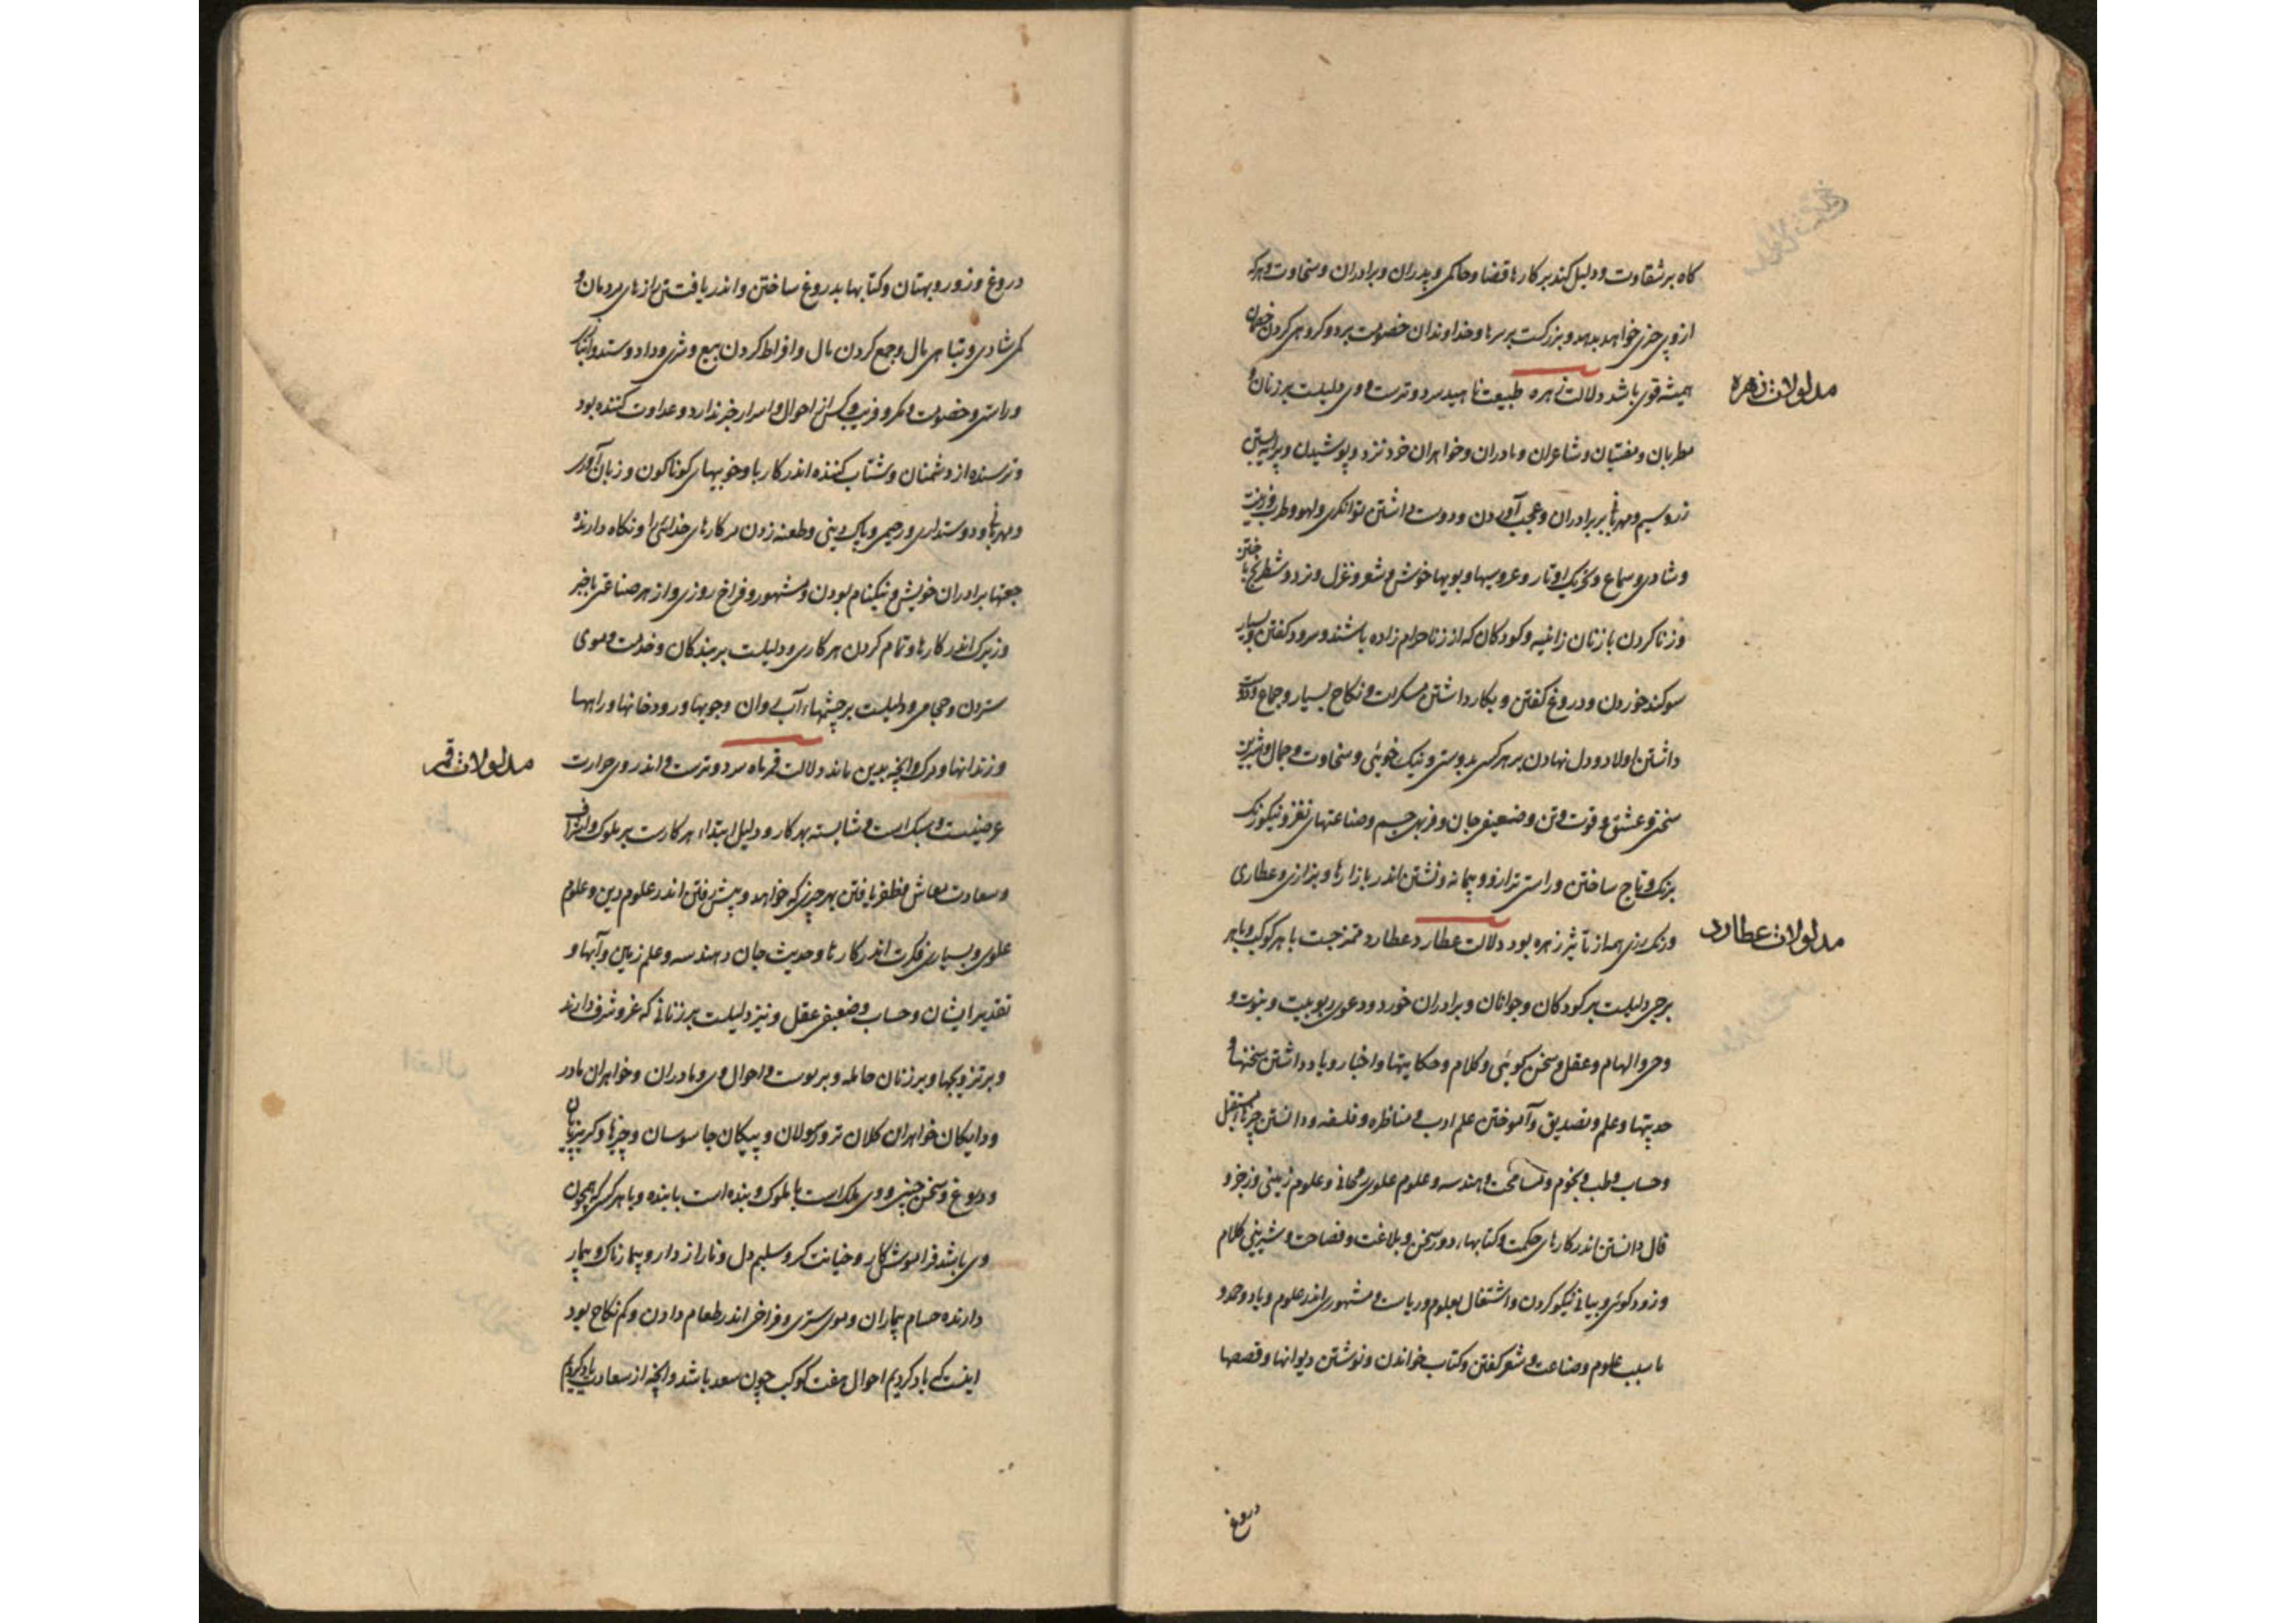 کاه بر شقاوت و دلیل کند بر کارها قضا و حاکمی و پدران و برادران و سخاوت و هرکه
از وی چیزی خواهد بدهد و بزرکست بر سرها و خداوندان خصومت برد و کروهی کردن خصمان
همیشه قوی باشد دلالت زهره طبیعت ناهید سرد و ترست و وی دلیلست بر زنان و
مدلولات زهره
مطربان و مغنیان و شاعران و مادران و خواهران خرد نزد و پوشیدن و پیرایه
زر و سیم و مهربانی بر برادران و عجب آوردن و دوست داشتن توانکری و لهو و طرب و زینت
و شادی و سماع و تحریک اوتار و عروسیها و بویها خوش و شعر و غزل و نرد و شطرنج باختن
و زنا کردن با زنان زانیه و کودکان که از زنا حرام زاده باشند و سرود کفتن و بسیار
سوکند خوردن و دروغ کفتن و بکار داشتن مسکرات و نکاح بسیار و جماع و دوست
داشتن اولاد و دل نهادن بر هر کسی بدوستی و نیک خوئی و سخاوت و جمال و شیرین
سخنی و عشق و قوت تن و ضعیفی جان و فربهی جسم و صناعتهای نغز و نیکو زنک
بزنک و تاج ساختن و راستی ترازو و پیمانه و نشستن اندر بازارها و بزازی و عطاری
و رنک رزی همه از تاثیر زهره بود دلالت عطارد عطارد ممزجست با هر کوکب و با هر
مدلولات عطارد
برجی دلیلست بر کودکان و جوانان و برادران خورد و دعوی ربوبیت و نبوت و
وحی و الهام و عقل و سخن کوئی و کلام و حکایتها و اخبار و یاد داشتن سخنها و
حدیثها و علم و تصدیق و آموختن علم ادب و مناظره و فلسفه و دانستن چیزها مستقبل
و حساب و طب و نجوم و مساحت و هندسه و علوم علوی و علوم زمینی و زجر و
فال دانستن اندر کارهای حکمت و کتابها دور سخن و بلاغت و فصاحت و شیرینی کلام
و زود کوئی و بیانی نیکو کردن و اشتغال بعلوم و ریاست و مشهوری اندر علوم
با سبب علوم و صناعت و شعر کفتن و کتاب خواندن و نوشتن دیوانها و قصصها
دروغ
دروغ و زور و بهتان و کتابها بدروغ ساختن و اندر یافتن رازهای مردمان و
کم شادی و تباهی مال و جمع کردن مال و افراط کردن بیع و شری و داد و ستد
و راستی و خصومت و مکر و فریب و کس از احوال و اسرار خبر ندارد و عداوت کننده بود
و ترسنده از دشمنان و شتاب کننده اندر کارها و خوبیهای کوناکون و زبان آوری
و مهربانی و دوستداری و رحیمی و پاک دینی و طعنه زدن در کارهای خدائی را و نکاه دارنده
برادران خویش و نیکنام بودن و مشهور و فراخ روزی و از هر صناعتی با خبر
و زیرک اندر کارها و تمام کردن هر کاری و دلیلست بر بندکان و خدمت موی
ستردن و حجامی و دلیلست بر چشمهاء آب روان و جویها و رودخانها و راهها
و زندانها و مرک و آنچه بدین ماند دلالت قمر ماه سرد و ترست و اندر وی حرارت
مدلولات قمر
عرضیست و سبک است و شایسته بهر کار و دلیل ابتداء هر کارست بر ملوک و اشراف
و سعادت معاش و ظفر یافتن بهر چیزی که خواهد و پیش رفتن اندر علوم دین و علوم
علوی و بسیاری فکرت اندر کارها و حدیث جان و هندسه و علم زمین و آبها و
تقدیر ایشان و حساب و ضعیفی عقل و نیز دلیلست بر زنانی که عز و شرف دارند
و بر تزویجها و بر زنان حامله و تربیت و احوال وی و مادران و خواهران مادر
و دایکان خواهران کلان تر و رسولان و پیکان جاسوسان و خبرها و کریزپایان
و دروغ و سخن چینی و وی ملک است با ملوک و بنده است با بنده و با هر کسی که همچون
وی باشد فراموشکار و خیانت کر و سلیم دل و ناراز دار و بیمار
دارنده بیماران و موی ستری و فراخی اندر طعام دادن و کم نکاح بود
اینست که یاد کردیم احوال هفت کوکب چون سعد باشد و آنچه از سعادت یاد کردیم